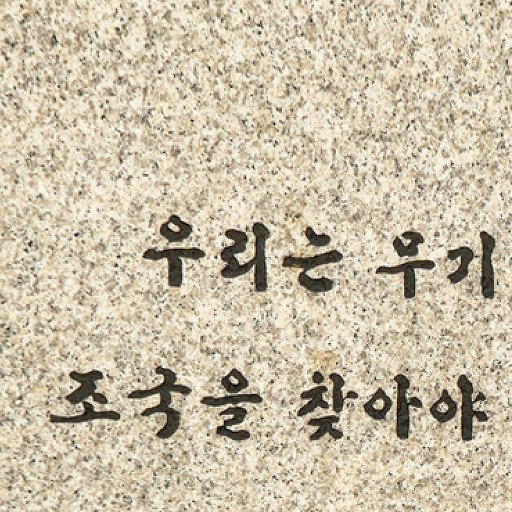 우리는 무기
조국을 찾아야